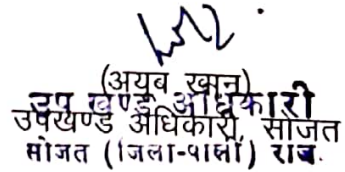 (अयुब खान)
उप खण्ड अधिकारी
उपखण्ड अधिकारी, सोजत
सोजत (जिला-पाली) राज.